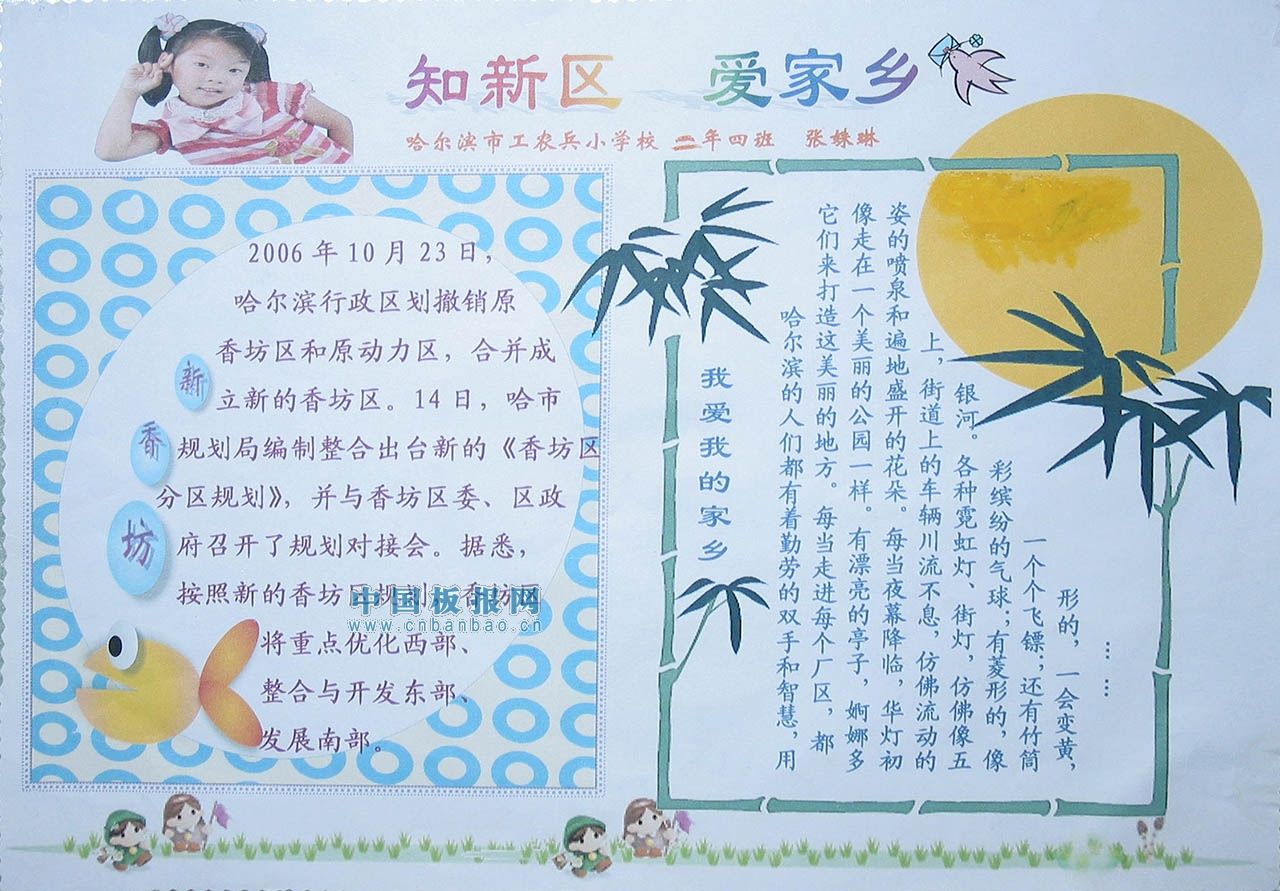 知新区 爱家乡
哈尔滨市工农兵小学校 二年四班 张姝琳
新香坊
2006年10月23日，
哈尔滨行政区划撤销原
香坊区和原动力区，合并成
立新的香坊区。14日，哈市
规划局编制整合出台新的《香坊区
分区规划》，并与香坊区委、区政
府召开了规划对接会。据悉，
按照新的香坊区规划，香坊区
将重点优化西部、
整合与开发东部、
发展南部。
中国板报网
www.cnbanbao.cn
我爱我的家乡
哈尔滨的人们都有着勤劳的双手和智慧，用
它们来打造这美丽的地方。每当走进每个厂区，都
像走在一个美丽的公园一样。有漂亮的亭子，婀娜多
姿的喷泉和遍地盛开的花朵。每当夜幕降临，华灯初
上，街道上的车辆川流不息，仿佛流动的
银河。各种霓虹灯、街灯，仿佛像五
彩缤纷的气球；有菱形的，像
一个个飞镖；还有竹筒
形的，一会变黄，
……